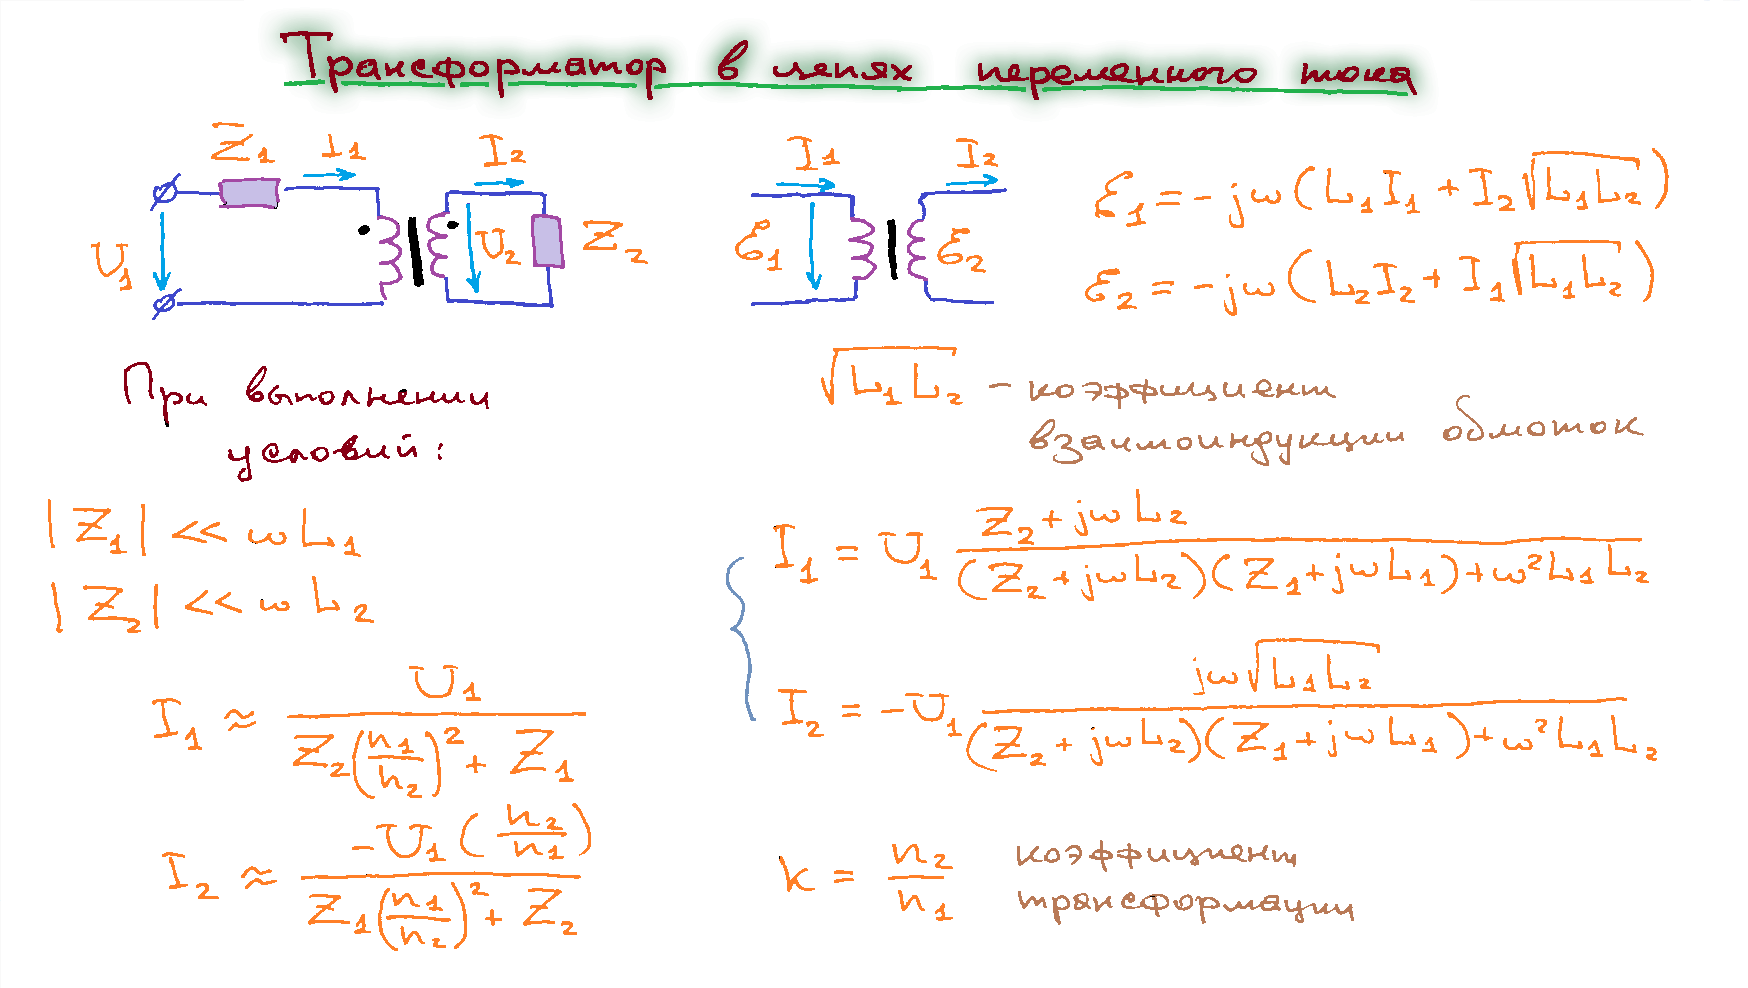 Трансформатор в цепях переменного тока
Z1 I1 I2
U1 U2 Z2
I1 I2
ℰ1 ℰ2
ℰ1 = -jω(L1I1 + I2√(L1L2))
ℰ2 = -jω(L2I2 + I1√(L1L2))
√(L1L2) - коэффициент
взаимоиндукции обмоток
При выполнении
условий:
|Z1| << ωL1
|Z2| << ωL2
I1 ≈ U1 / (Z2(n1/n2)² + Z1)
I2 ≈ -U1(n2/n1) / (Z1(n1/n2)² + Z2)
I1 = U1 (Z2 + jωL2) / ((Z2 + jωL2)(Z1 + jωL1) + ω²L1L2)
I2 = -U1 jω√(L1L2) / ((Z2 + jωL2)(Z1 + jωL1) + ω²L1L2)
k = n2/n1 коэффициент
трансформации